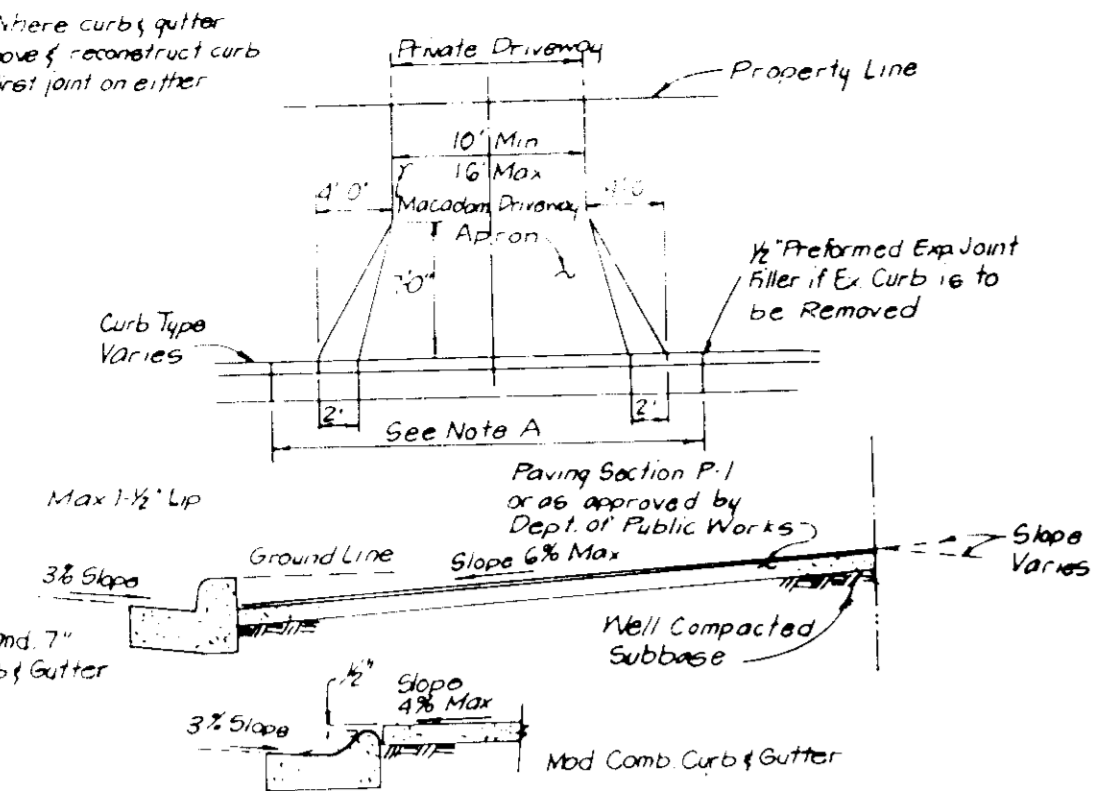 where curb & gutter
ove & reconstruct curb
irst joint on either
Private Driveway
Property Line
10' Min
16' Max
4'0"
Macadam Driveway
Apron
½" Preformed Exp. Joint
Filler if Ex. Curb is to
be Removed
Curb Type
Varies
2'
2'
See Note A
Max 1-½" Lip
Paving Section P-1
or as approved by
Dept. of Public Works
Ground Line
Slope 6% Max
Slope
Varies
3% Slope
Well Compacted
Subbase
7"
& Gutter
½"
Slope
4% Max
3% Slope
Mod Comb. Curb & Gutter